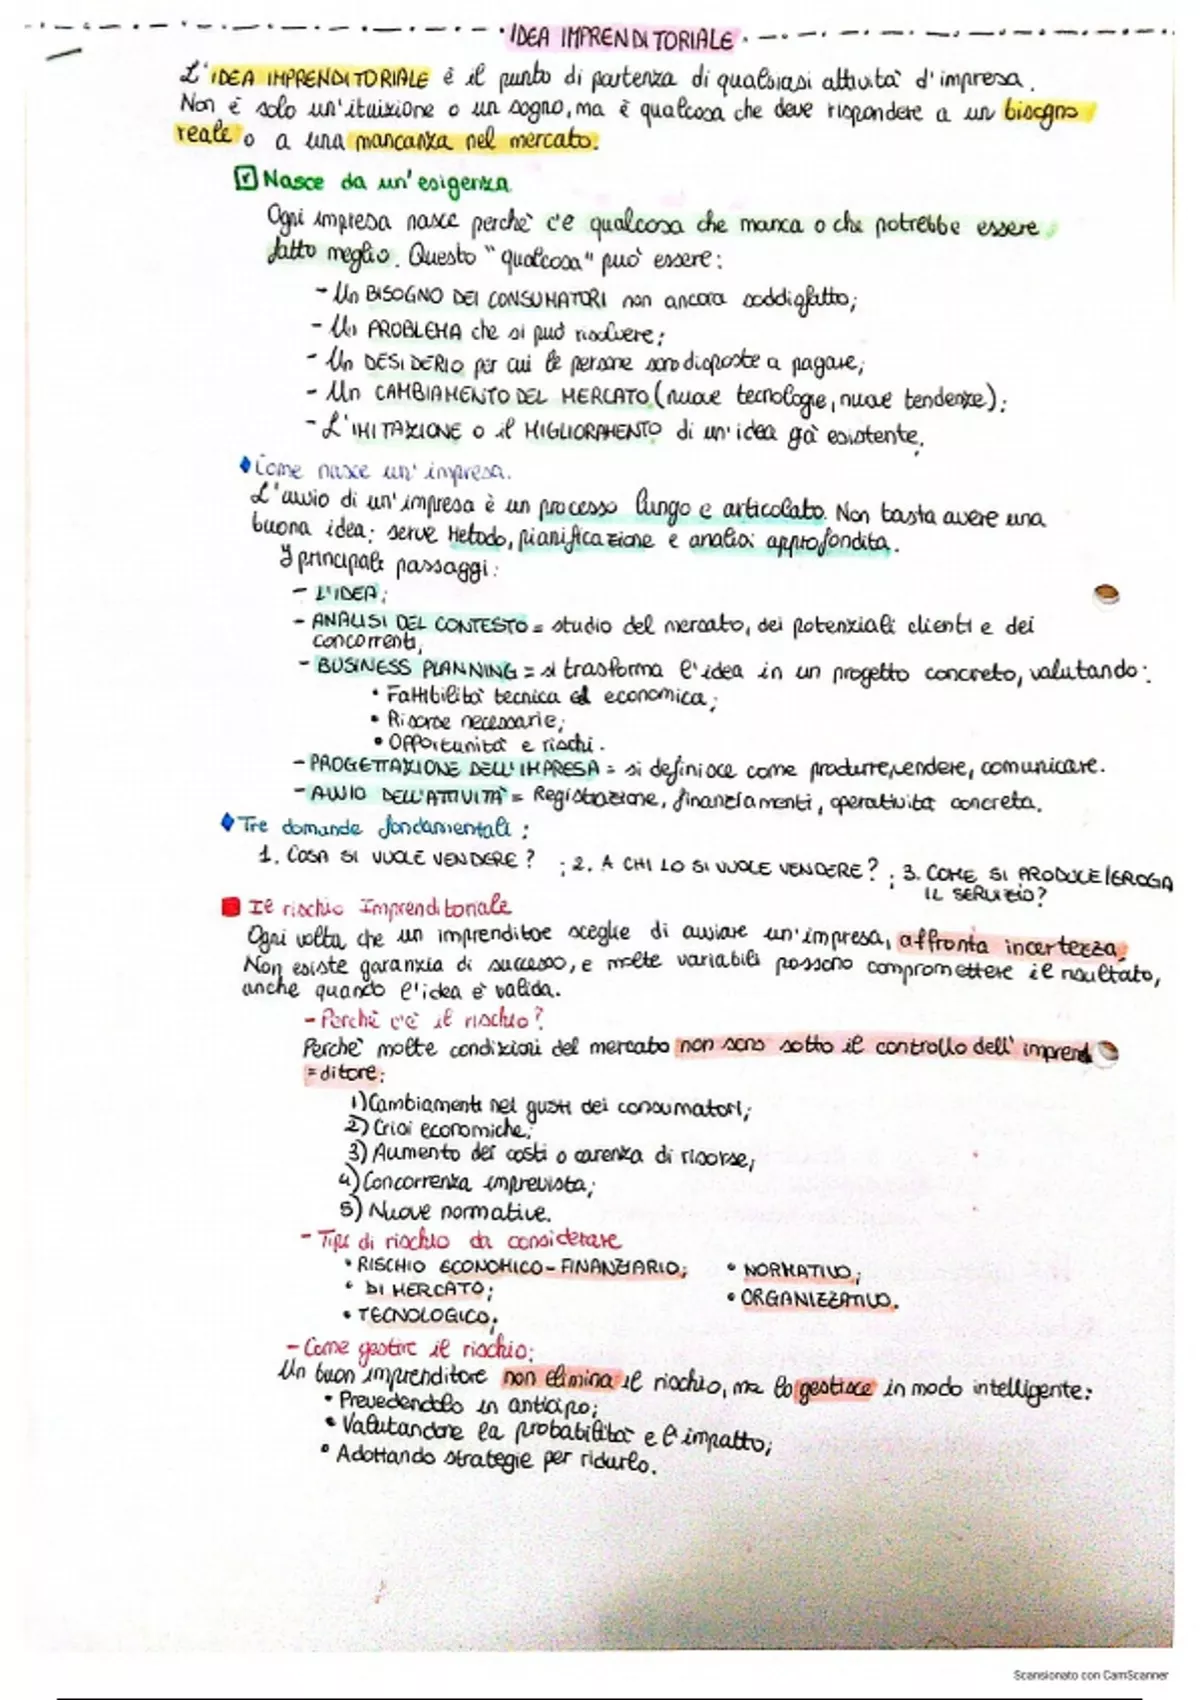 IDEA IMPRENDITORIALE
L'IDEA IMPRENDITORIALE è il punto di partenza di qualsiasi attività d'impresa.
Non è solo un'ituizione o un sogno, ma è qualcosa che deve rispondere a un bisogno
reale o a una mancanza nel mercato.
Nasce da un'esigenza
Ogni impresa nasce perchè c'è qualcosa che manca o che potrebbe essere
fatto meglio. Questo "qualcosa" può essere:
- Un BISOGNO DEI CONSUMATORI non ancora soddisfatto;
- Un PROBLEMA che si può risolvere;
- Un DESIDERIO per cui le persone sono disposte a pagare;
- Un CAMBIAMENTO DEL MERCATO (nuove tecnologie, nuove tendenze);
- L'IMITAZIONE o il MIGLIORAMENTO di un'idea già esistente.
Come nasce un'impresa.
L'avvio di un'impresa è un processo lungo e articolato. Non basta avere una
buona idea: serve Metodo, pianificazione e analisi approfondita.
I principali passaggi:
- L'IDEA;
- ANALISI DEL CONTESTO = studio del mercato, dei potenziali clienti e dei
concorrenti;
- BUSINESS PLANNING = si trasforma l'idea in un progetto concreto, valutando:
• Fattibilità tecnica ed economica;
• Risorse necessarie;
• Opportunità e rischi.
- PROGETTAZIONE DELL'IMPRESA = si definisce come produrre, vendere, comunicare.
- AVVIO DELL'ATTIVITÀ = Registrazione, finanziamenti, operatività concreta.
Tre domande fondamentali:
1. COSA SI VUOLE VENDERE? ; 2. A CHI LO SI VUOLE VENDERE? ; 3. COME SI PRODUCE/EROGA
IL SERVIZIO?
Il rischio Imprenditoriale
Ogni volta che un imprenditore sceglie di avviare un'impresa, affronta incertezza.
Non esiste garanzia di successo, e molte variabili possono compromettere il risultato,
anche quando l'idea è valida.
- Perchè c'è il rischio?
Perchè molte condizioni del mercato non sono sotto il controllo dell'imprend
=ditore:
1) Cambiamenti nei gusti dei consumatori;
2) Crisi economiche;
3) Aumento dei costi o carenza di risorse;
4) Concorrenza imprevista;
5) Nuove normative.
- Tipi di rischio da considerare
• RISCHIO ECONOMICO-FINANZIARIO; • NORMATIVO;
• DI MERCATO; • ORGANIZZATIVO.
• TECNOLOGICO;
- Come gestire il rischio:
Un buon imprenditore non elimina il rischio, ma lo gestisce in modo intelligente:
• Prevedendolo in anticipo;
• Valutandone la probabilità e l'impatto;
• Adottando strategie per ridurlo.
Scansionato con CamScanner